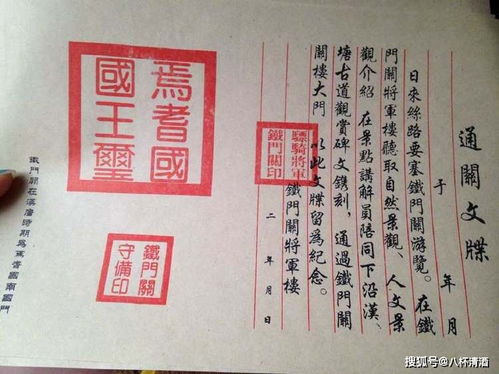 通關文牒
于 年 月
日來絲路要塞鐵門關游覽。在鐵
門關將軍樓聽取自然景觀、人文景
觀介紹 在景點講解員陪同下沿漢、
塘古道觀賞碑文鐫刻，通過鐵門關
關樓大門 以此文牒留爲紀念。
鐵門關將軍樓
二 年 月 日
驃騎將軍
鐵門關印
焉耆國
國王璽
鐵門關
守備印
鐵門關在漢唐時期為焉耆國南國門
搜狐号@八杯清酒